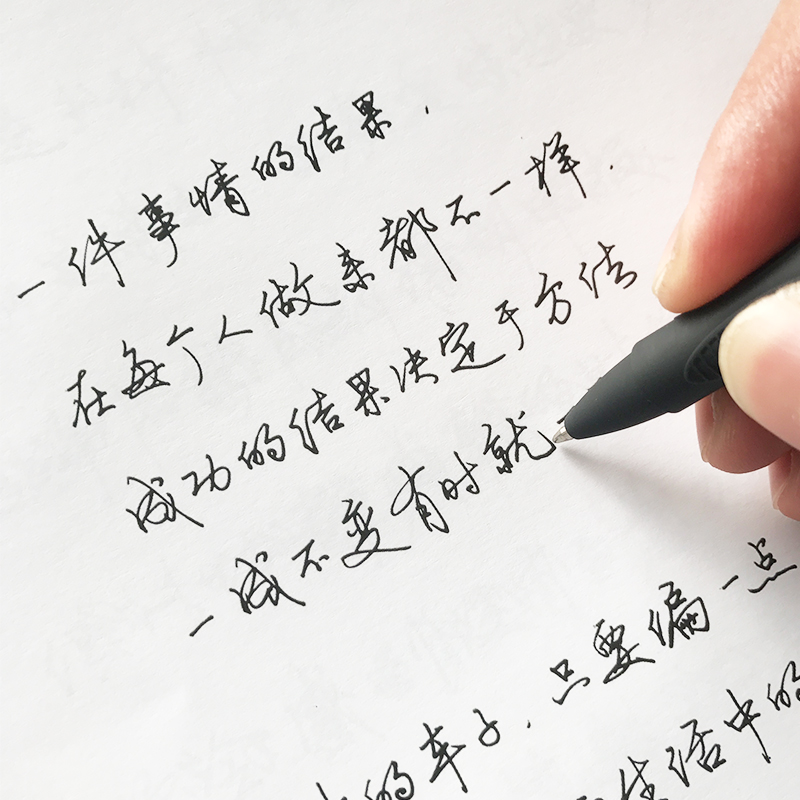 一件事情的结果，
在每个人做来都不一样．
成功的结果决定于方法
一成不变有时就
的车子．只要偏一点
生活中的